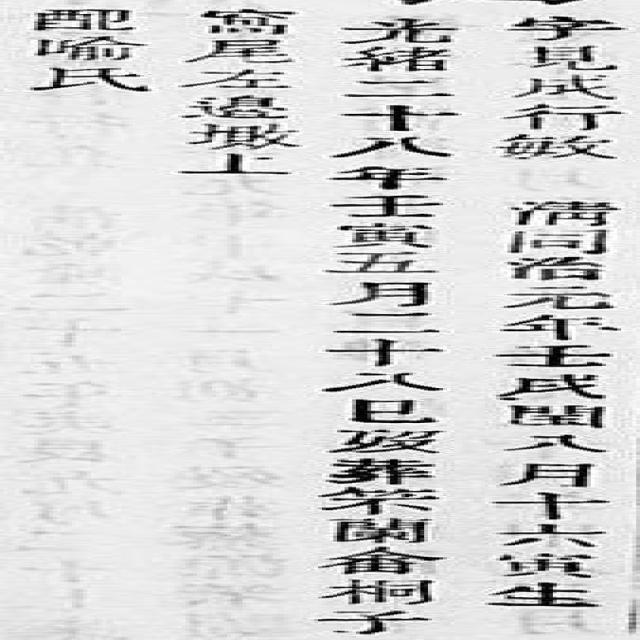 字見成行 清同治元年壬戌閏八月十六寅生
光緒二十八年壬寅五月二十八巳 葬 子
尾左邊 上
配喻氏